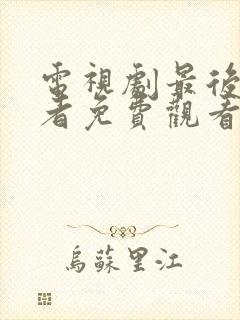 電視劇最後
者免費觀看
烏蘇里江